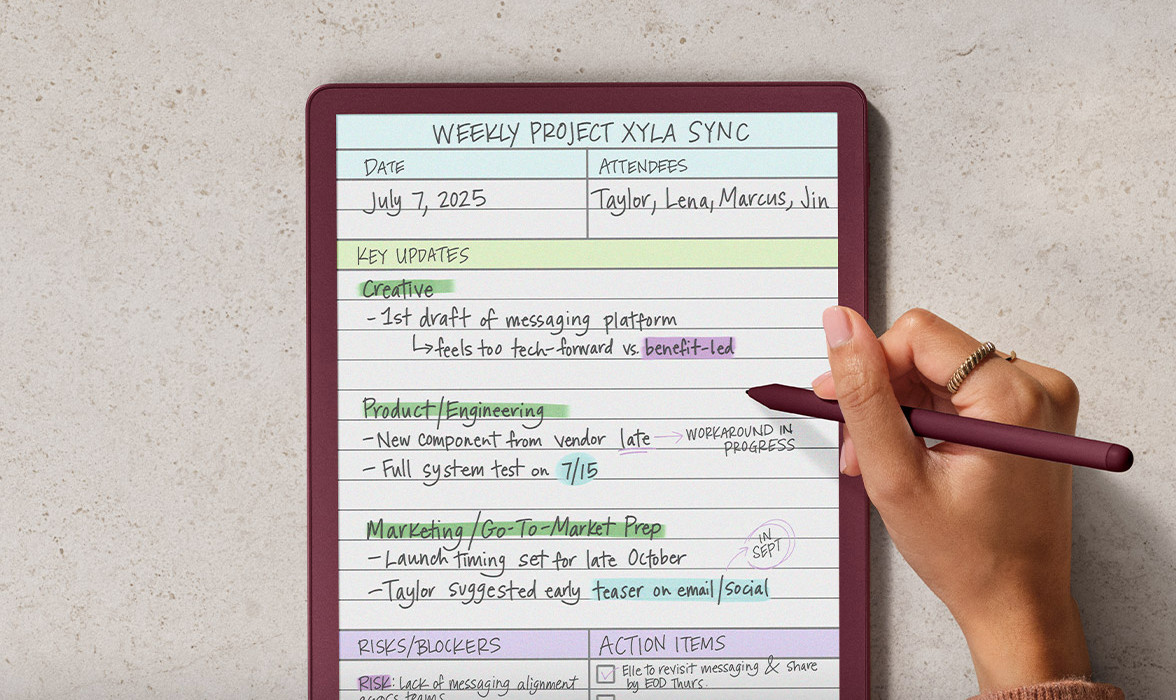 WEEKLY PROJECT XYLA SYNC
DATE
ATTENDEES
July 7, 2025
Taylor, Lena, Marcus, Jin
KEY UPDATES
Creative
- 1st draft of messaging platform
↳ feels too tech-forward vs. benefit-led
Product/Engineering
- New component from vendor late → WORKAROUND IN
PROGRESS
- Full system test on 7/15
Marketing/Go-To-Market Prep
- Launch timing set for late October
IN
SEPT
- Taylor suggested early teaser on email/social
RISKS/BLOCKERS
RISK: Lack of messaging alignment
across teams
ACTION ITEMS
Elle to revisit messaging & share
by EOD Thurs.